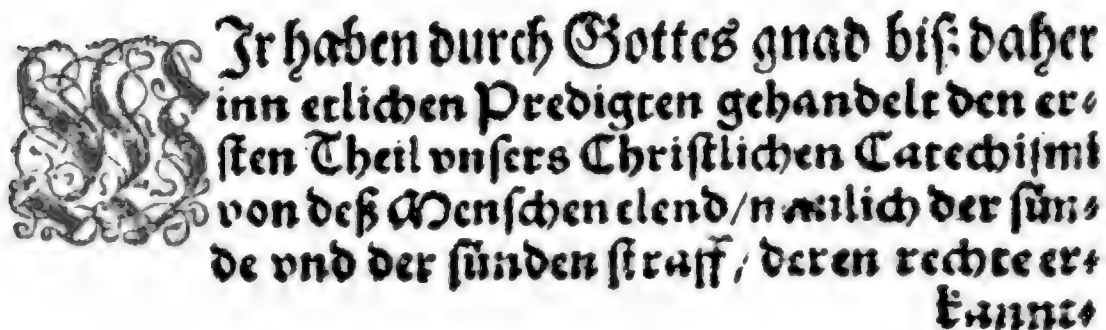 WIr haben durch Gottes gnad biß daher
inn etlichen Predigten gehandelt den er⸗
sten Theil vnsers Christlichen Catechismi
von deß Menschen elend/ namlich der sün⸗
de vnd der sünden straff/ deren rechte er⸗
kannt⸗